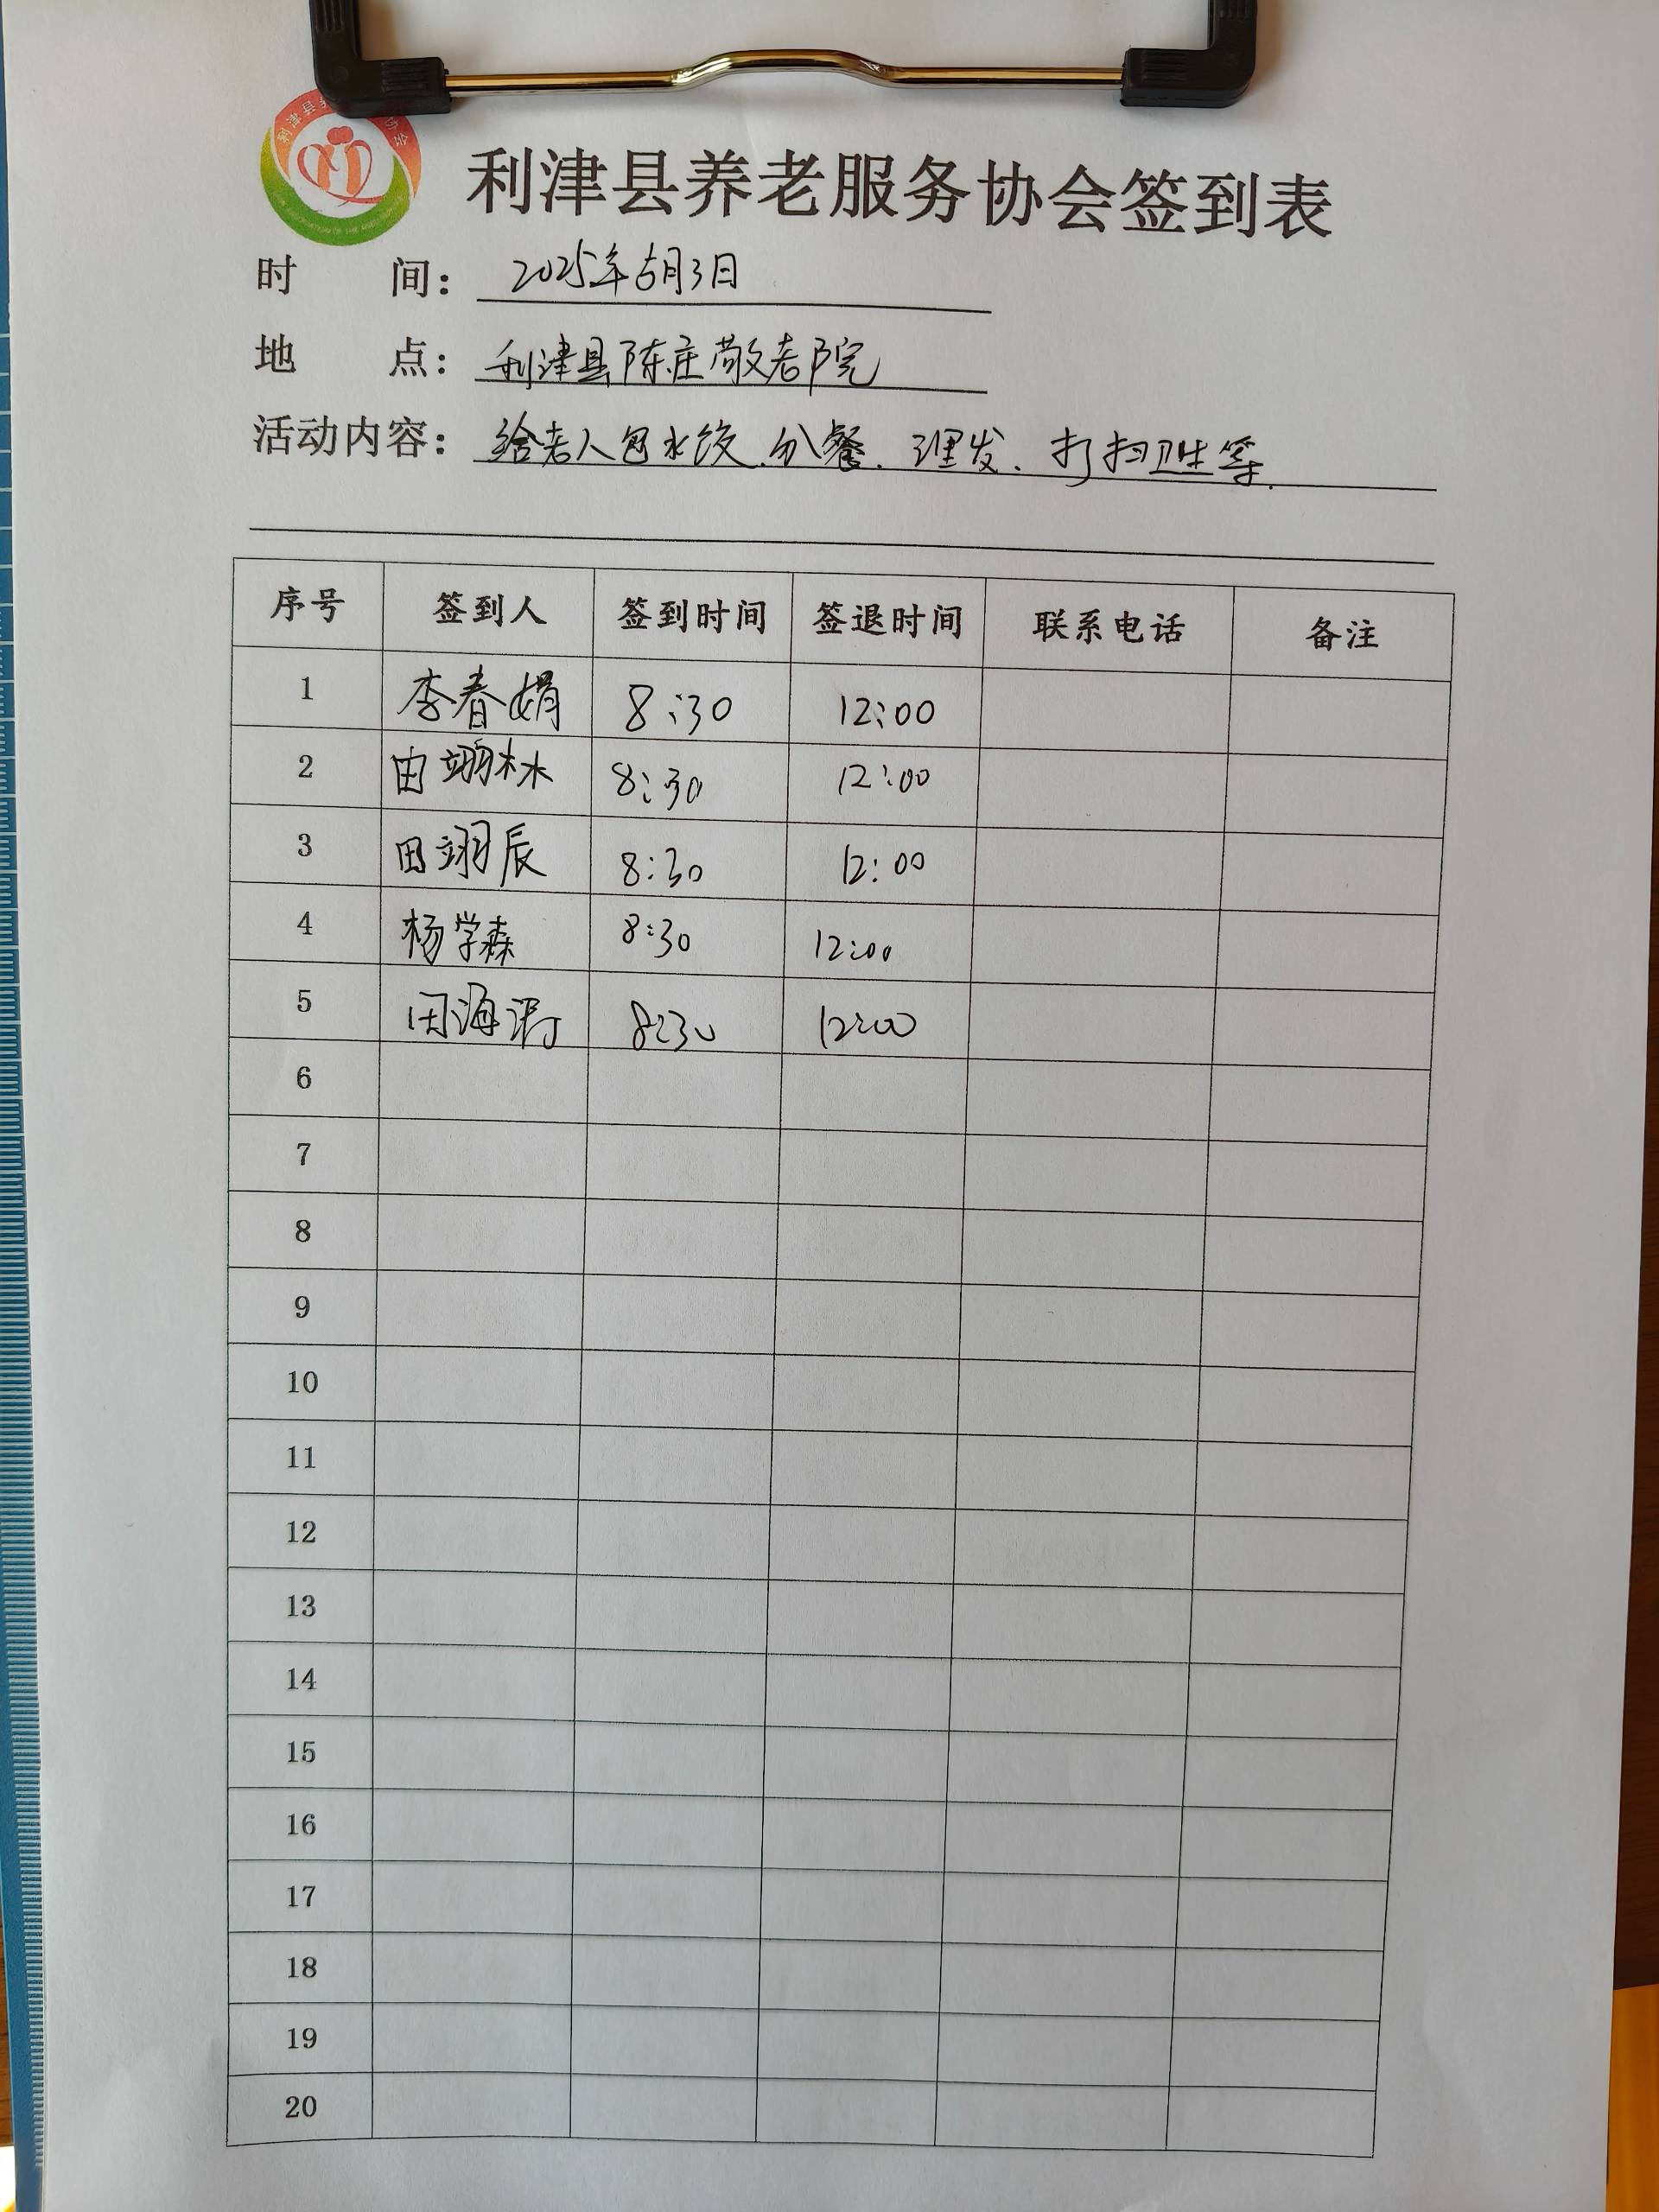 利津县养老服务协会签到表
时 间： 2025年5月3日
地 点： 利津县陈庄敬老院
活动内容： 给老人包水饺、分餐、理发、打扫卫生等.
序号 签到人 签到时间 签退时间 联系电话 备注
1 李春娟 8:30 12:00
2 田翊林 8:30 12:00
3 田翊辰 8:30 12:00
4 杨学森 8:30 12:00
5 田海涛 8:30 12:00
6
7
8
9
10
11
12
13
14
15
16
17
18
19
20